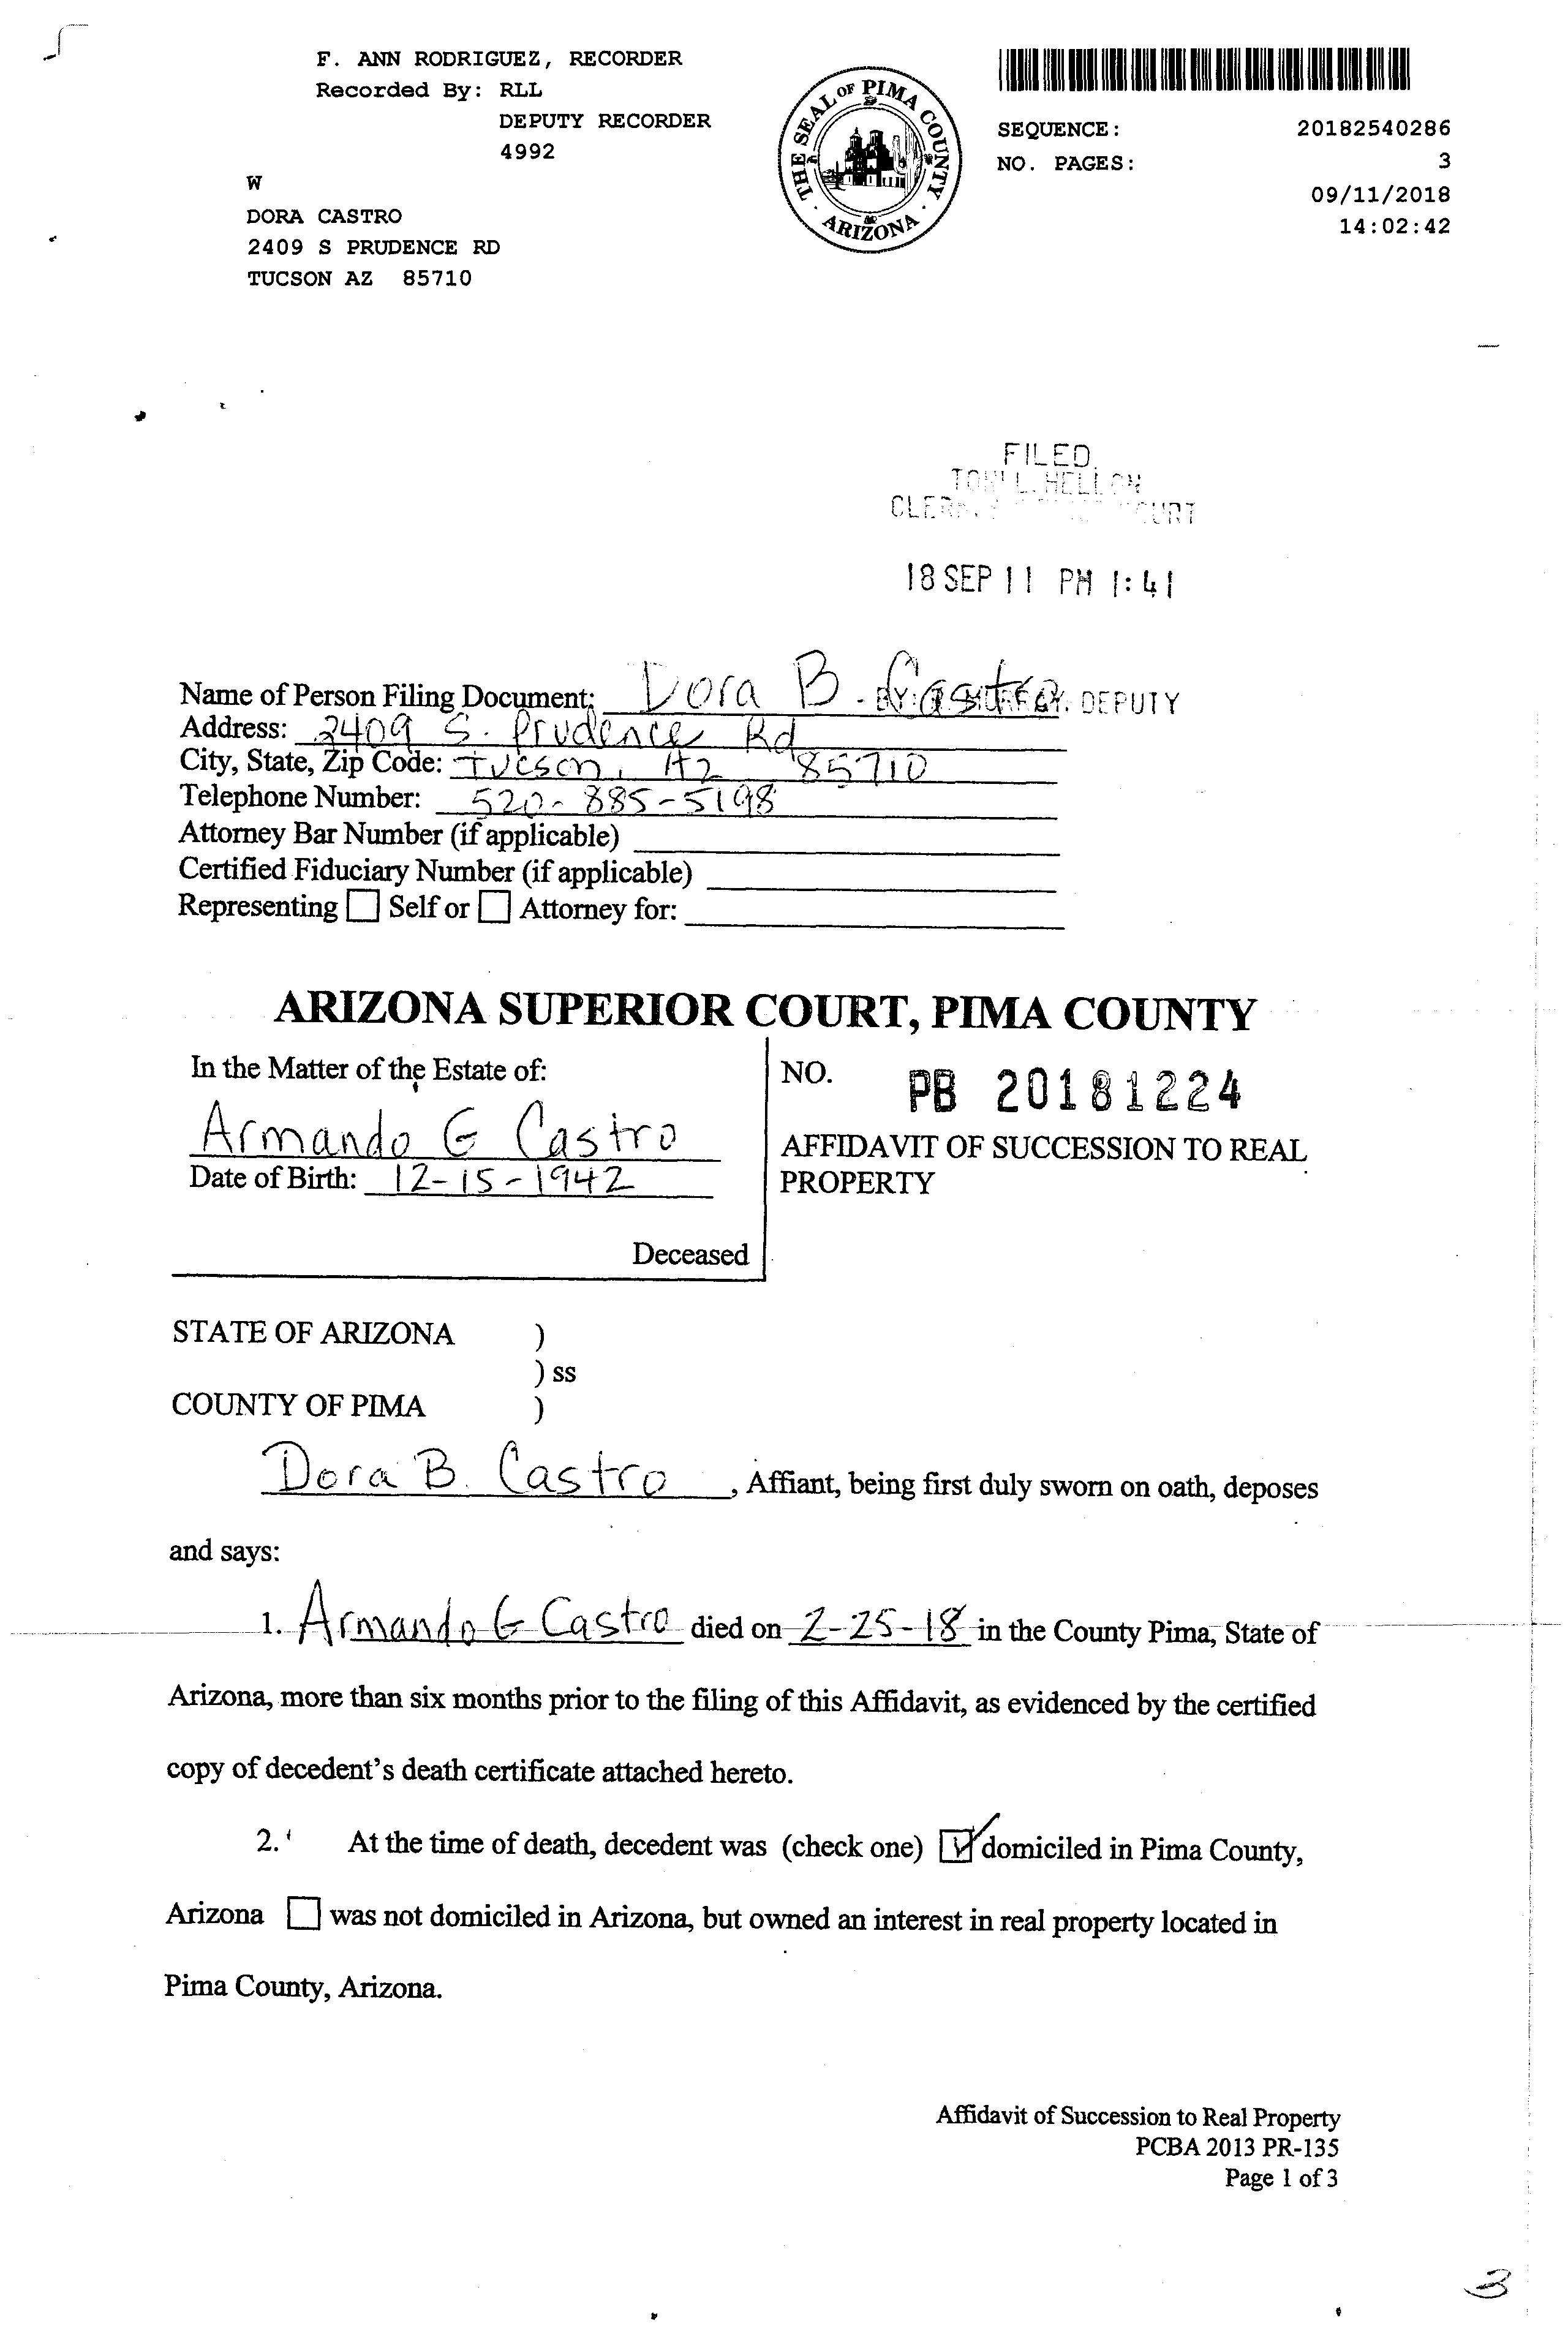 F. ANN RODRIGUEZ, RECORDER
Recorded By: RLL
DEPUTY RECORDER
4992
W
DORA CASTRO
2409 S PRUDENCE RD
TUCSON AZ 85710
THE SEAL OF PIMA COUNTY
ARIZONA
SEQUENCE: 20182540286
NO. PAGES: 3
09/11/2018
14:02:42
FILED
TONI L. HELLON
COURT
18 SEP 11 PM 1:41
Name of Person Filing Document: Dora B. Castro
BY: DEPUTY
Address: 2409 S. Prudence Rd
City, State, Zip Code: Tucson, AZ 85710
Telephone Number: 520-885-5198
Attorney Bar Number (if applicable)
Certified Fiduciary Number (if applicable)
Representing ☐ Self or ☐ Attorney for:
ARIZONA SUPERIOR COURT, PIMA COUNTY
In the Matter of the Estate of:
Armando G Castro
Date of Birth: 12-15-1942
Deceased
NO. PB 20181224
AFFIDAVIT OF SUCCESSION TO REAL
PROPERTY
STATE OF ARIZONA )
) ss
COUNTY OF PIMA )
Dora B. Castro, Affiant, being first duly sworn on oath, deposes
and says:
1. Armando G Castro died on 2-25-18 in the County Pima, State of
Arizona, more than six months prior to the filing of this Affidavit, as evidenced by the certified
copy of decedent's death certificate attached hereto.
2. At the time of death, decedent was (check one) ☑ domiciled in Pima County,
Arizona ☐ was not domiciled in Arizona, but owned an interest in real property located in
Pima County, Arizona.
Affidavit of Succession to Real Property
PCBA 2013 PR-135
Page 1 of 3
3